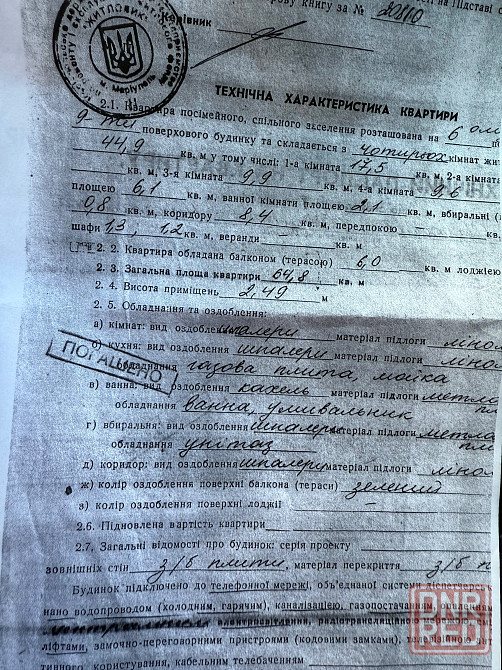 рову книгу за № 20810 на підставі
Керівник
"ЖИТЛОВИК"
м. Маріуполь
ТЕХНІЧНА ХАРАКТЕРИСТИКА КВАРТИРИ
2.1. Квартира посімейного, спільного заселення розташована на 6 ом
9 ти поверхового будинку та складається з чотирьох кімнат жи
44,9 кв. м у тому числі: 1-а кімната 17,5 кв. м, 2-а кімната
кв. м, 3-я кімната 9,9 кв. м, 4-а кімната 9,6
площею 6,1 кв. м, ванної кімнати площею 2,1 кв. м, вбиральні (
0,8 кв. м, коридору 8,4 кв. м, передпокою – кв. м,
шафи 1,3, 1,2 кв. м, веранди кв. м
2. 2. Квартира обладана балконом (терасою) 6,0 кв. м, лоджією
2. 3. Загальна площа квартири 64,8 кв. м
2. 4. Висота приміщень 2,49 м
2. 5. Обладнання та оздоблення:
а) кімнат: вид оздоблення шпалери матеріал підлоги ліно
б) кухня: вид оздоблення шпалери матеріал підлоги ліно
обладнання газова плита, мойка
ПОГАШЕНО
в) ванна: вид оздоблення кахель матеріал підлоги метла
пл
обладнання ванна, умивальник
г) вбиральня: вид оздоблення шпалери матеріал підлоги метла
пл
обладнання унітаз
д) коридор: вид оздоблення шпалери матеріал підлоги ліно
ж) колір оздоблення поверхні балкона (тераси) зелений
з) колір оздоблення поверхні лоджії –
2.6. Підновлена вартість квартири
2.7. Загальні відомості про будинок: серія проекту
зовнішніх стін з/б плити, матеріал перекриття з/б п
Будинок підключено до телефонної мережі, об'єднаної системи диспетчер
нано водопроводом (холодним, гарячим), каналізацією, газопостачанням, опаленн
електровідання, радіотрансляційною
ліфтами, замочно-переговорними пристроями (кодовими замками), телевізійною ант
тивного користування, кабельним телебаченням
DNR